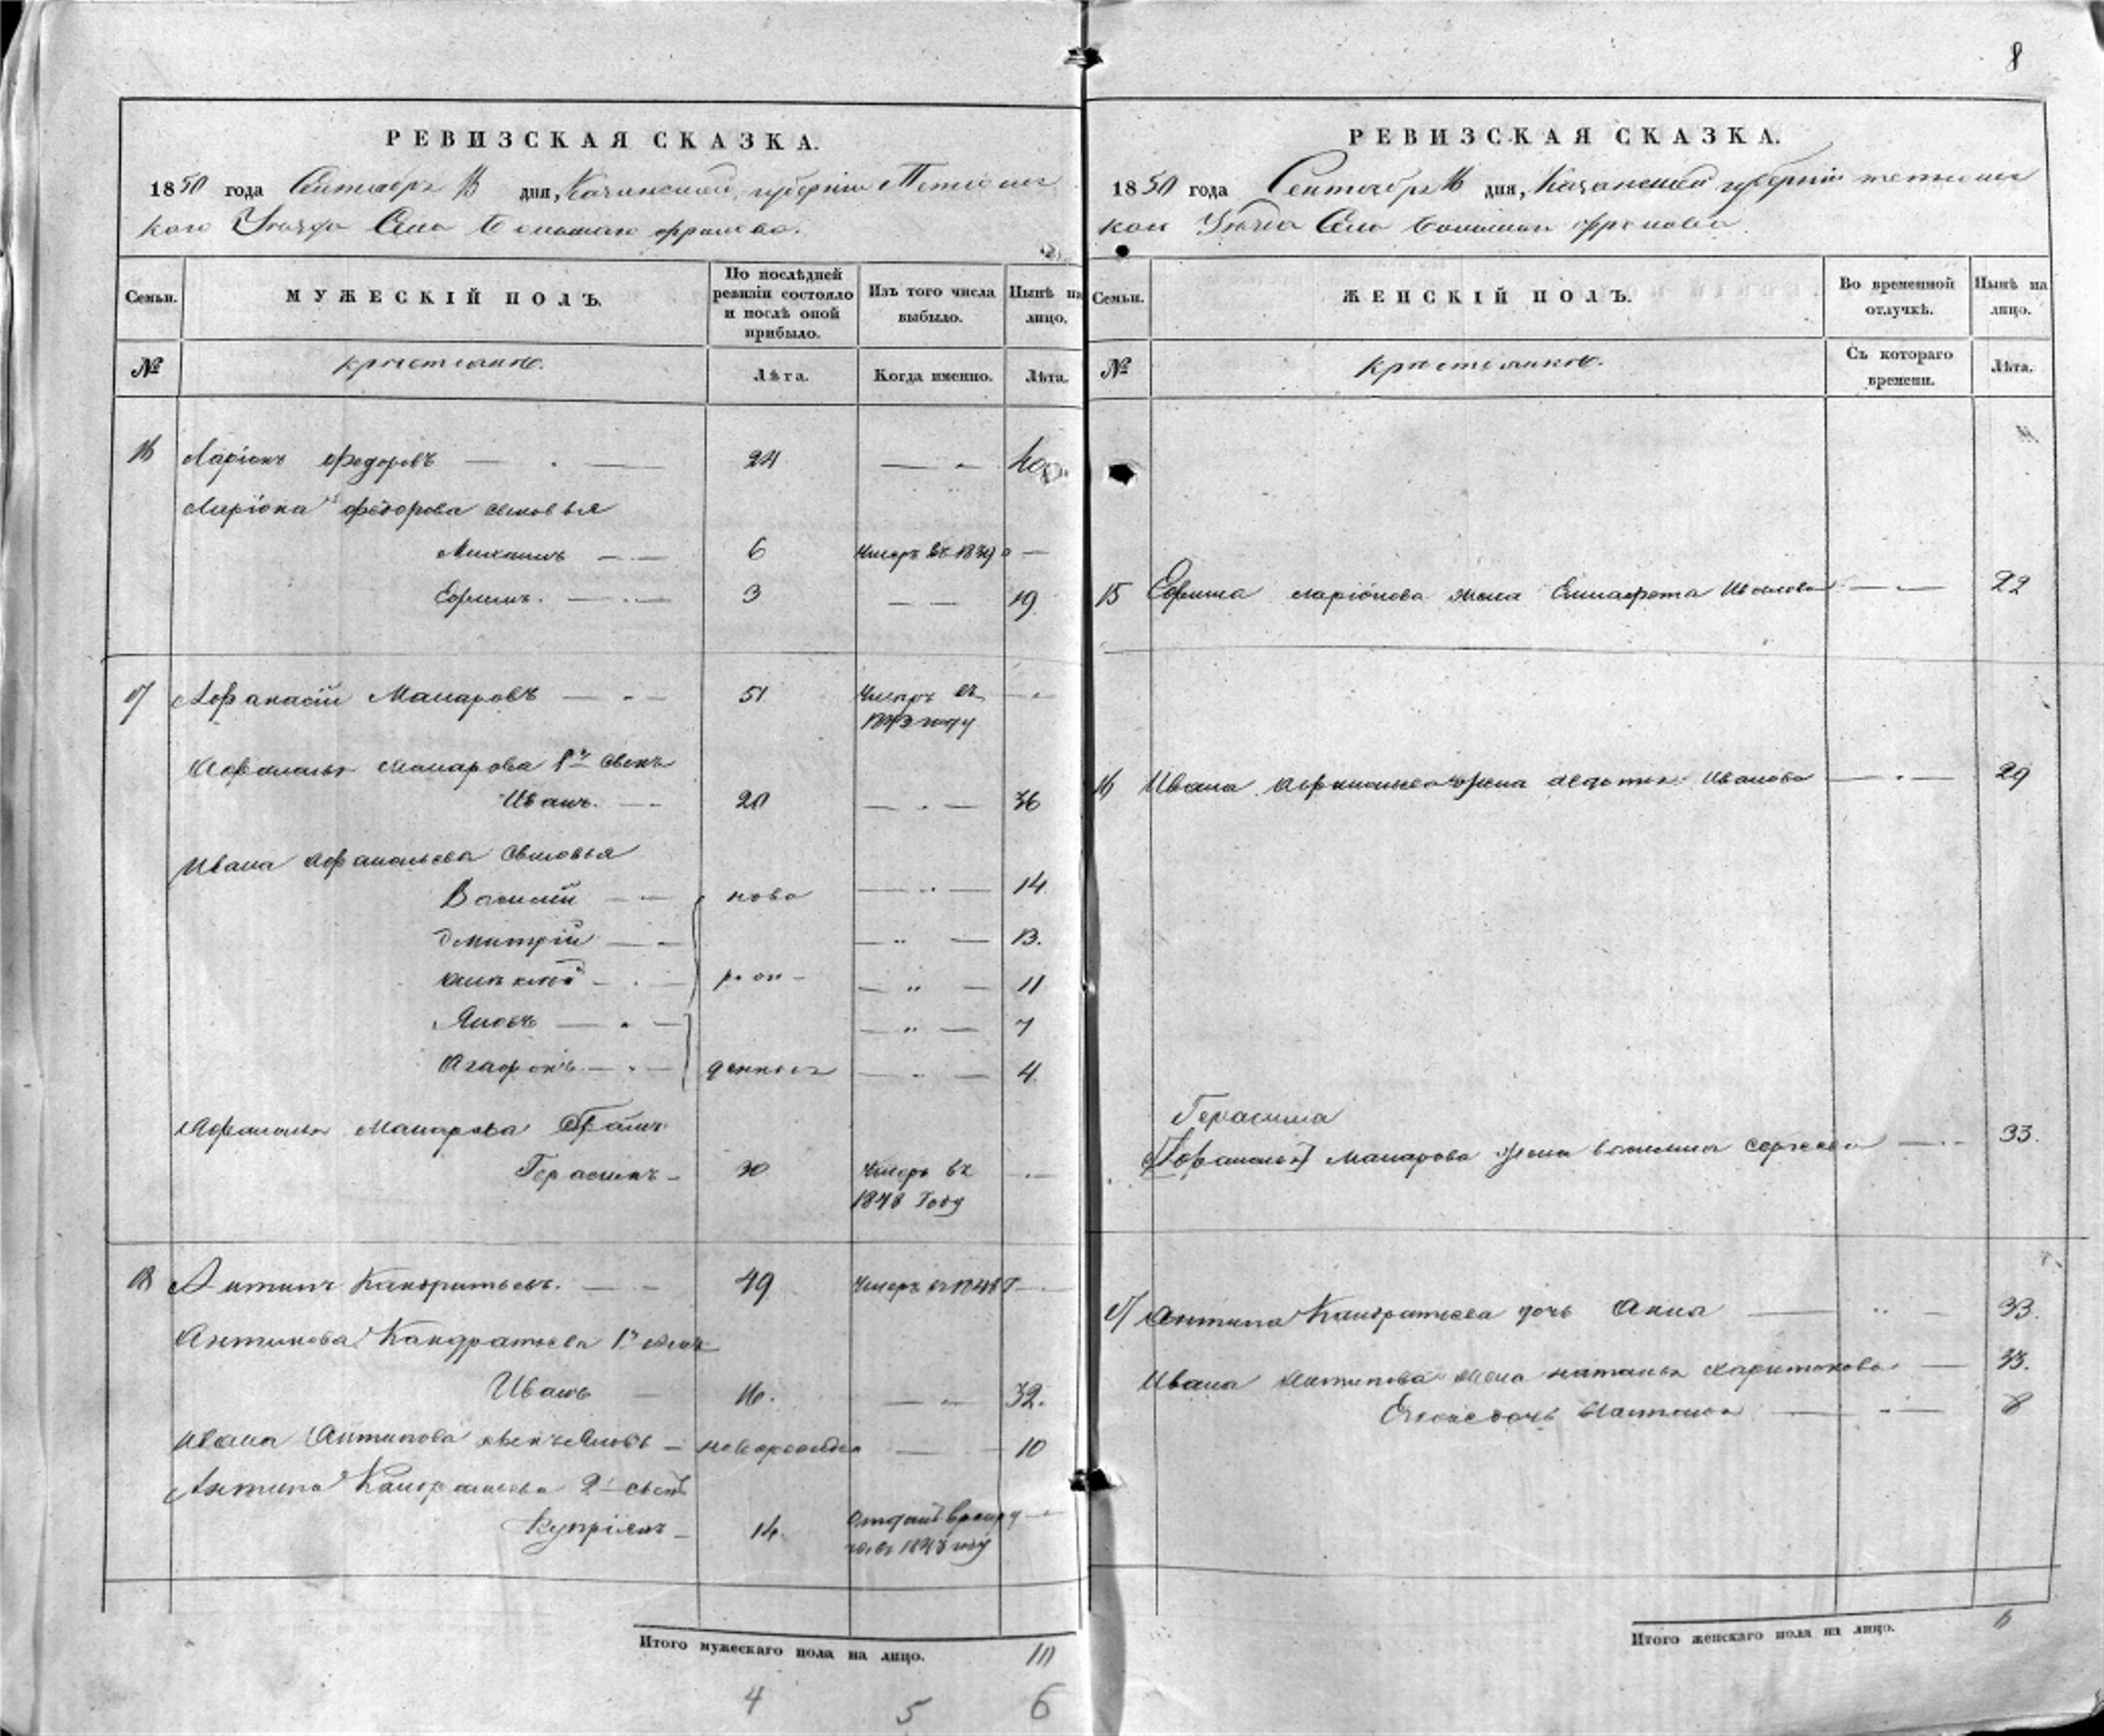 8
РЕВИЗСКАЯ СКАЗКА.
1850 года Сентября 16 дня, Казанской губернии Тетюш
скаго Уезда Села Большаго Фролова.
Семьи.
МУЖЕСКІЙ ПОЛЪ.
По послѣдней ревизіи состояло и послѣ оной прибыло.
Изъ того числа выбыло.
Нынѣ на лицо.
№
крестьяне.
Лѣта.
Когда именно.
Лѣта.
16 Ларіонъ Федоровъ 24 40
Ларіона Федорова сыновья
Михаилъ 6 Умеръ въ 1839
Ефимъ. 3 19
17 Афанасій Макаровъ 51 Умеръ въ
1843 году
Афанасья Макарова 1й сынъ
Иванъ. 20 36
Ивана Афанасьева сыновья
Василій ново 14
Дмитрій 13.
рож 11
Яковъ 7
Агафонъ 4
Афанасья Макарова братъ
Герасимъ 30 Умеръ въ
1848 году
18 Антипъ Кандратьевъ. 49 Умеръ въ 1848 г
Антипова Кандратьева 1й сынъ
Иванъ 16. 32.
Ивана Антипова сынъ Яковъ новорожден 10
Антипа Кандратьева 2й сынъ
Купріянъ 14. Отданъ в рекру
ты въ 1843 году
Итого мужескаго пола на лицо. 10
4 5 6
РЕВИЗСКАЯ СКАЗКА.
1850 года Сентября 16 дня, Казанской губерніи Тетюш
скаго Уезда Села Большаго Фролова
Семьи.
ЖЕНСКІЙ ПОЛЪ.
Во временной отлучкѣ.
Нынѣ на лицо.
№
крестьянки.
Съ котораго времени.
Лѣта.
15 Ефима Ларіонова жена Иванова 22
16 Ивана Афанасьева жена Авдотья Иванова 29
Герасима
Афанасья Макарова жена Василиса Сергеева 33.
17 Антипа Кандратьева дочь Анна 33.
Ивана Антипова жена Наталья Харитонова 33.
Его же дочь 8
Итого женскаго пола на лицо. 6